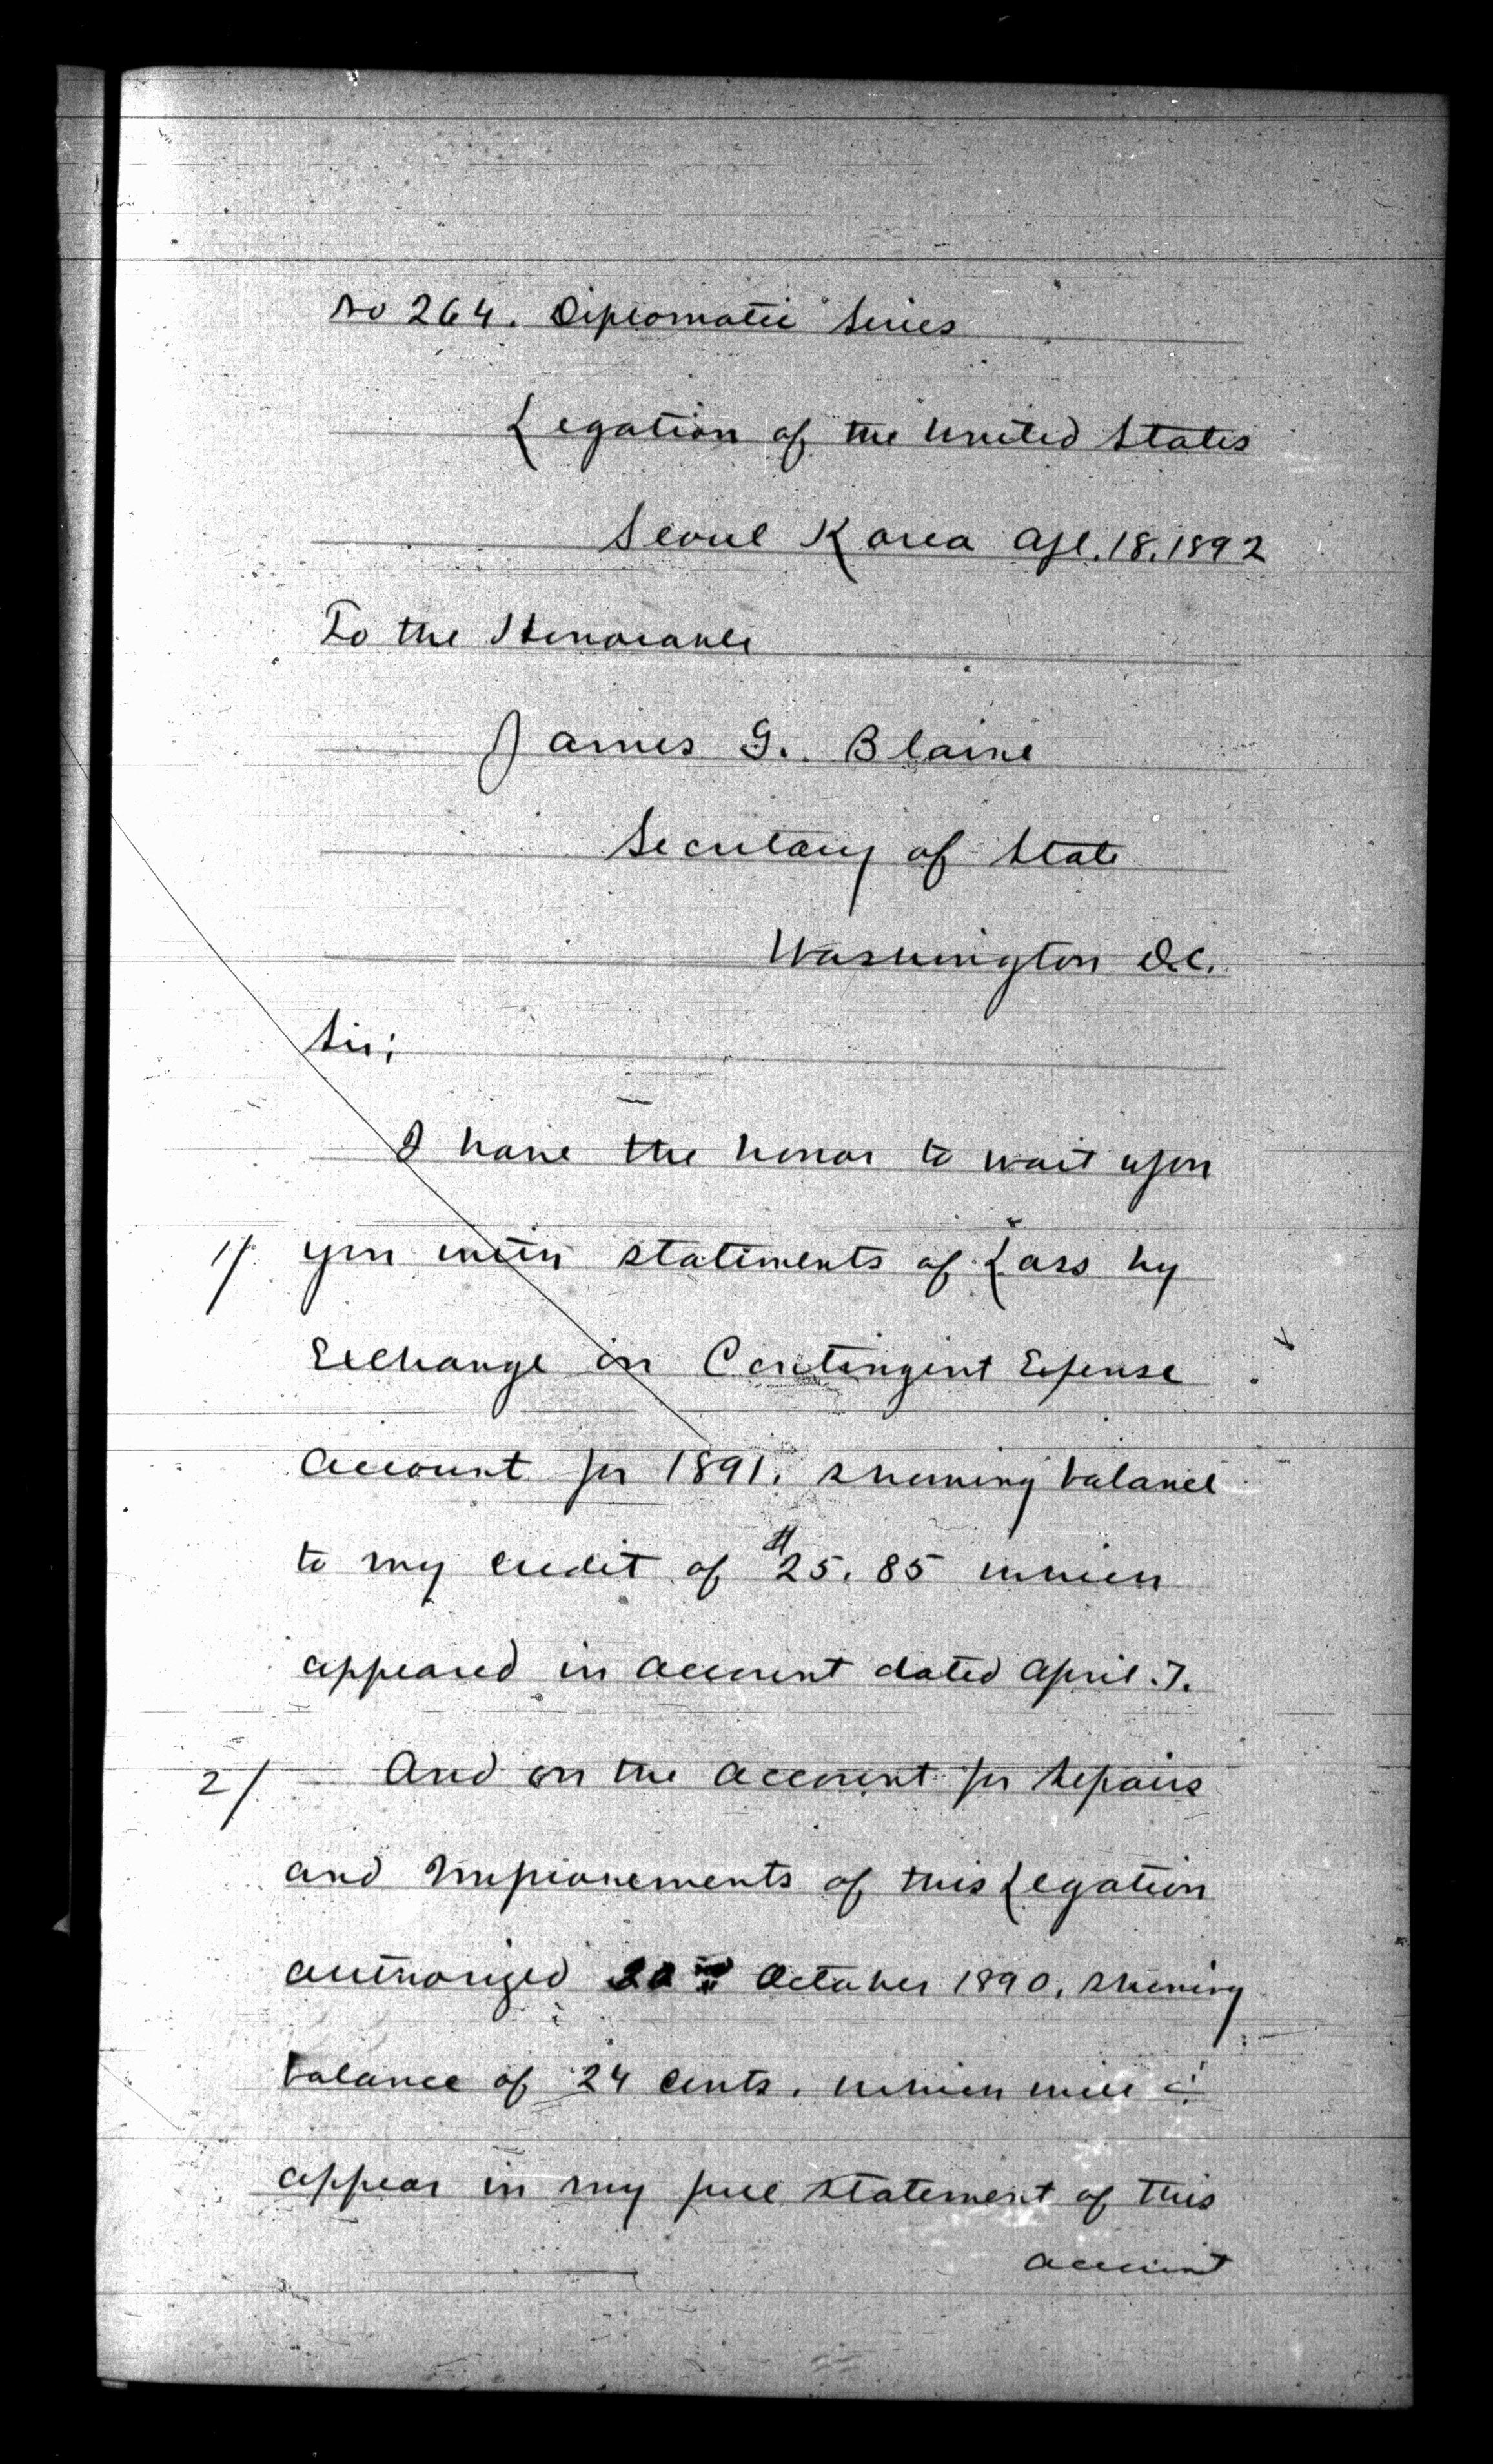 No 264. Diplomatic Series
Legation of the United States
Seoul Korea Apl. 18. 1892
To the Honorable
James G. Blaine
Secretary of State
Washington D.C.
Sir;
I have the honor to wait upon
1/ you with statements of Loss by
Exchange on Contingent Expense
Account for 1891. showing balance
to my credit of $25.85 which
appeared in account dated April 7.
2/ And on the account for Repairs
and Improvements of this Legation
authorized October 1890. showing
balance of 24 cents. which will
appear in my full statement of this
account